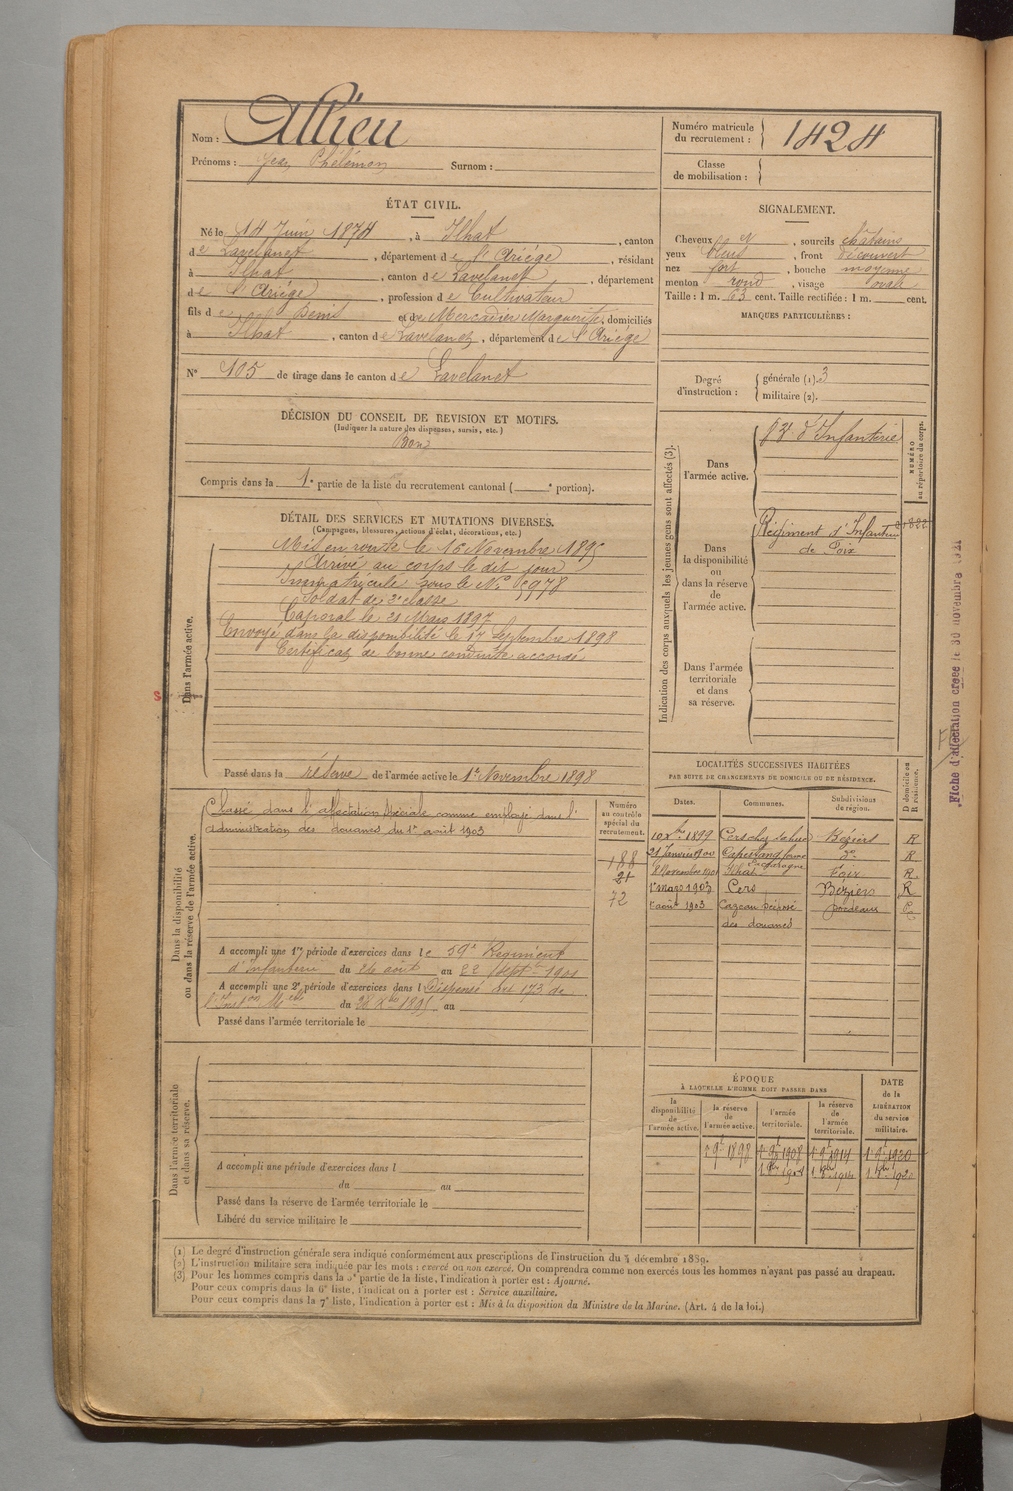 Nom : Allieu
Prénoms : Jean Philémon Surnom :
Numéro matricule du recrutement : 1424
Classe de mobilisation :
ÉTAT CIVIL.
Né le 14 Juin 1874, à Ilhat, canton
de Lavelanet, département de l'Ariége, résidant
à Ilhat, canton de Lavelanet, département
de l'Ariége, profession de Cultivateur
fils de Denis et de Mercadier Marguerite, domiciliés
à Ilhat, canton de Lavelanet, département de l'Ariége
N° 105 de tirage dans le canton de Lavelanet
SIGNALEMENT.
Cheveux , sourcils châtains
yeux bleus, front découvert
nez fort, bouche moyenne
menton rond, visage ovale
Taille : 1 m. 63 cent. Taille rectifiée : 1 m. cent.
MARQUES PARTICULIÈRES :
Degré d'instruction : générale (1). 3
militaire (2).
DÉCISION DU CONSEIL DE REVISION ET MOTIFS.
(Indiquer la nature des dispenses, sursis, etc.)
Bon
Compris dans la 1e partie de la liste du recrutement cantonal ( e portion).
DÉTAIL DES SERVICES ET MUTATIONS DIVERSES.
(Campagnes, blessures, actions d'éclat, décorations, etc.)
Dans l'armée active.
Mis en route le 16 Novembre 1895
Arrivé au corps le dit jour
Immatriculé sous le N°
Soldat de 2e classe
Caporal le 21 Mars 1897
Envoyé dans la disponibilité le 17 Septembre 1898
Certificat de bonne conduite accordé
Passé dans la réserve de l'armée active le 1er Novembre 1898
Indication des corps auxquels les jeunes gens sont affectés (3).
NUMÉRO au répertoire du corps.
Dans l'armée active.
d'Infanterie
Dans la disponibilité ou dans la réserve de l'armée active.
Régiment d'Infanterie
de Foix
Dans l'armée territoriale et dans sa réserve.
Fiche d'affectation créée le 30 novembre 1921
Dans la disponibilité ou dans la réserve de l'armée active.
Classé dans l'affectation spéciale comme employé dans l'
administration des douanes du 1er août 1903
Numéro au contrôle spécial du recrutement.
188
21
72
A accompli une 1re période d'exercices dans le 59e Régiment
d'Infanterie du 26 août au 22 Septbre 1901
A accompli une 2e période d'exercices dans l Dispensé art 173 de
l'Inston Melle du 28 Xbre 1895 au
Passé dans l'armée territoriale le
LOCALITÉS SUCCESSIVES HABITÉES
PAR SUITE DE CHANGEMENTS DE DOMICILE OU DE RÉSIDENCE.
Dates. Communes. Subdivisions de région. D domicile ou R résidence.
10 Xbre 1899 Cers Béziers R
21 Janvier 1900 Capestang do R
8 Novembre 1901 Ilhat Foix R.
1er Mars 1903 Cers Beziers R
1er août 1903 Cazeau préposé Bordeaux
des douanes
Dans l'armée territoriale et dans sa réserve.
A accompli une période d'exercices dans l
du au
Passé dans la réserve de l'armée territoriale le
Libéré du service militaire le
ÉPOQUE
À LAQUELLE L'HOMME DOIT PASSER DANS
la disponibilité de l'armée active. la réserve de l'armée active. l'armée territoriale. la réserve de l'armée territoriale. DATE de la LIBÉRATION du service militaire.
1er 9bre 1898 1er 9bre 1908 1er 9bre 1914 1er 9bre 1920
(1) Le degré d'instruction générale sera indiqué conformément aux prescriptions de l'instruction du 4 décembre 1889.
(2) L'instruction militaire sera indiquée par les mots : exercé ou non exercé. On comprendra comme non exercés tous les hommes n'ayant pas passé au drapeau.
(3) Pour les hommes compris dans la 5e partie de la liste, l'indication à porter est : Ajourné.
Pour ceux compris dans la 6e liste, l'indication à porter est : Service auxiliaire.
Pour ceux compris dans la 7e liste, l'indication à porter est : Mis à la disposition du Ministre de la Marine. (Art. 4 de la loi.)